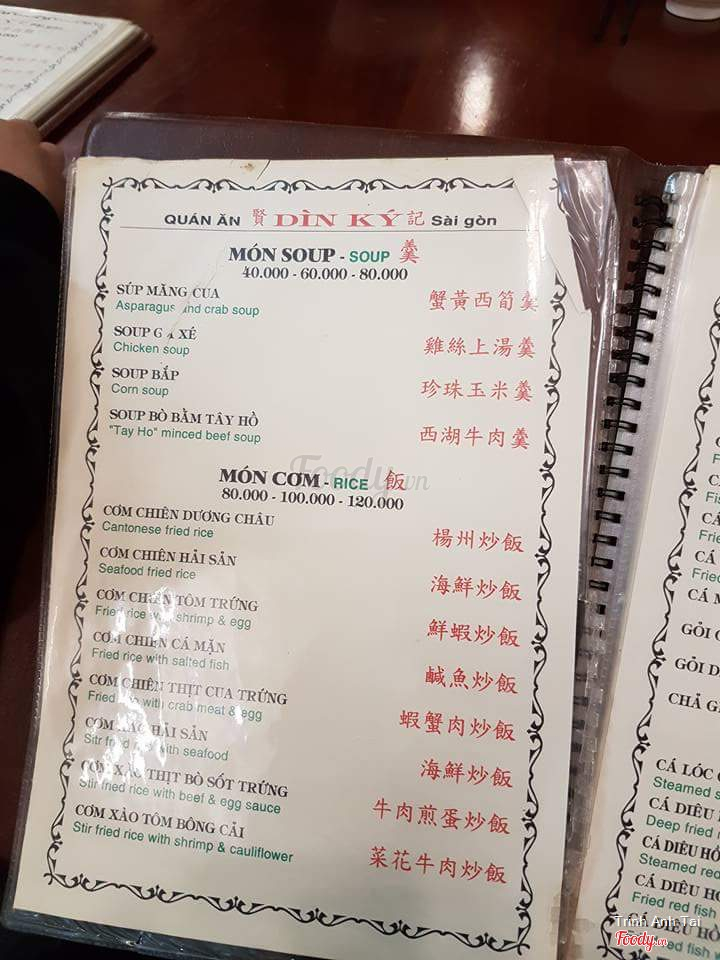 QUÁN ĂN 賢 DÌN KÝ 記 Sài gòn
MÓN SOUP - SOUP 羹
40.000 - 60.000 - 80.000
SÚP MĂNG CUA 蟹黃西筍羹
Asparagus and crab soup
SOUP GÀ XÉ 雞絲上湯羹
Chicken soup
SOUP BẮP 珍珠玉米羹
Corn soup
SOUP BÒ BẰM TÂY HỒ 西湖牛肉羹
"Tay Ho" minced beef soup
MÓN CƠM - RICE 飯
80.000 - 100.000 - 120.000
CƠM CHIÊN DƯƠNG CHÂU 楊州炒飯
Cantonese fried rice
CƠM CHIÊN HẢI SẢN 海鮮炒飯
Seafood fried rice
CƠM CHIÊN TÔM TRỨNG 鮮蝦炒飯
Fried rice with shrimp & egg
CƠM CHIÊN CÁ MẶN 鹹魚炒飯
Fried rice with salted fish
CƠM CHIÊN THỊT CUA TRỨNG 蝦蟹肉炒飯
Fried rice with crab meat & egg
CƠM XÀO HẢI SẢN 海鮮炒飯
Sitr fried rice with seafood
CƠM XÀO THỊT BÒ SỐT TRỨNG 牛肉煎蛋炒飯
Stir fried rice with beef & egg sauce
CƠM XÀO TÔM BÔNG CẢI 菜花牛肉炒飯
Stir fried rice with shrimp & cauliflower
Foody.vn
GỎI
GỎI
CHẢ
CÁ LÓC
Steamed
CÁ DIÊU
Deep fried
CÁ DIÊU HỒ
Steamed red
CÁ DIÊU HỒ
Fried red fish
Trinh Anh Tai
Foody.vn